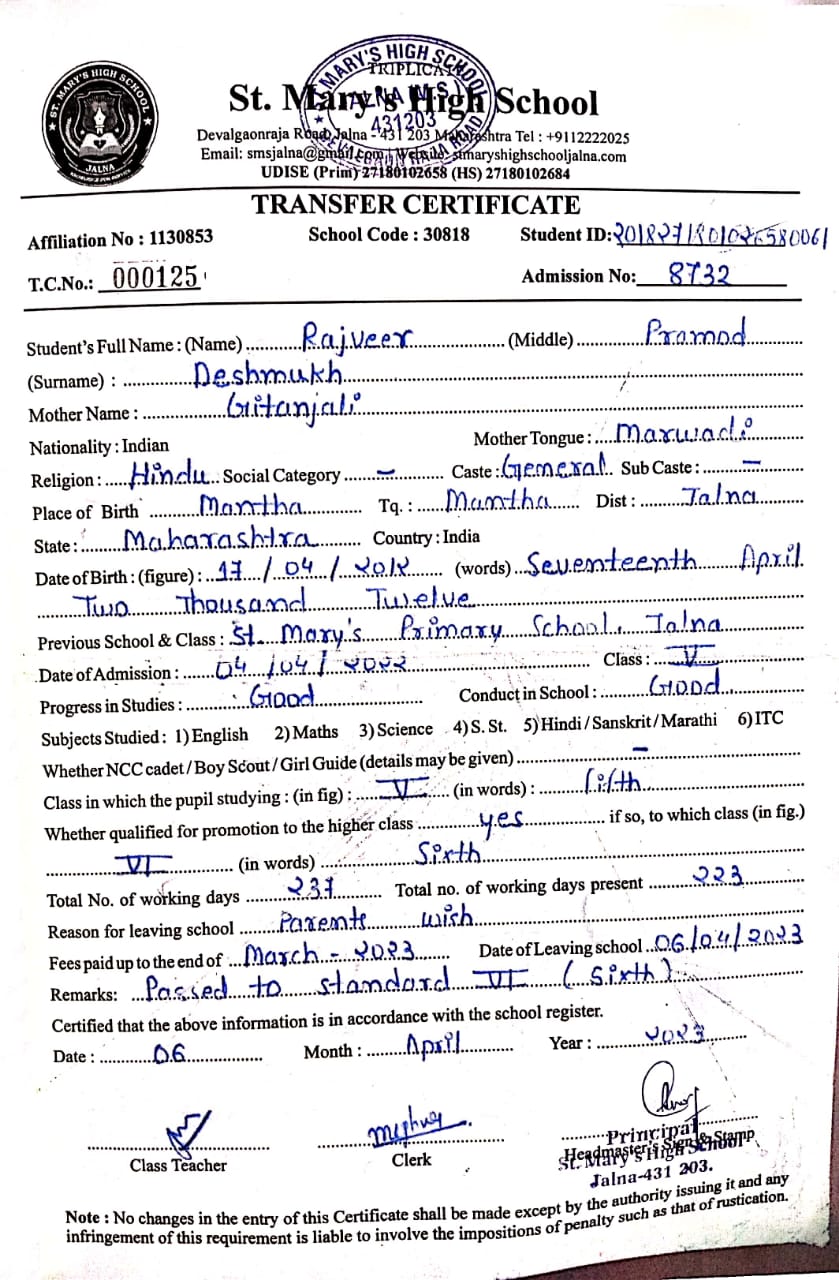 ST. MARY'S HIGH SCHOOL
JALNA
ST. MARY'S HIGH SCHOOL
TRIPLICATE
JALNA (M.S.)
431203
St. Mary's High School
Devalgaonraja Road, Jalna - 431 203 Maharashtra Tel : +9112222025
Email: smsjalna@gmail.com | Website: stmaryshighschooljalna.com
UDISE (Prim) 27180102658 (HS) 27180102684
TRANSFER CERTIFICATE
Affiliation No : 1130853 School Code : 30818 Student ID: 2018271801026580061
T.C.No.: 000125 Admission No: 8732
Student's Full Name : (Name) Rajveer (Middle) Pramod
(Surname) : Deshmukh
Mother Name : Gitanjali
Nationality : Indian Mother Tongue : Marwadi
Religion : Hindu Social Category – Caste : General Sub Caste : –
Place of Birth Mantha Tq. : Mantha Dist : Jalna
State : Maharashtra Country : India
Date of Birth : (figure) : 17 / 04 / 2012 (words) Seventeenth April
Two Thousand Twelve
Previous School & Class : St. Mary's Primary School, Jalna
Date of Admission : 04/04/2022 Class : V
Progress in Studies : Good Conduct in School : Good
Subjects Studied : 1) English 2) Maths 3) Science 4) S. St. 5) Hindi / Sanskrit / Marathi 6) ITC
Whether NCC cadet / Boy Scout / Girl Guide (details may be given) –
Class in which the pupil studying : (in fig) : V (in words) : fifth
Whether qualified for promotion to the higher class yes if so, to which class (in fig.)
VI (in words) Sixth
Total No. of working days 237 Total no. of working days present 223
Reason for leaving school Parents wish
Fees paid up to the end of March - 2023 Date of Leaving school 06/04/2023
Remarks: Passed to standard VI (Sixth)
Certified that the above information is in accordance with the school register.
Date : 06 Month : April Year : 2023
Class Teacher
Clerk
Principal
Headmaster's Sign & Stamp
St. Mary's High School
Jalna-431 203.
Note : No changes in the entry of this Certificate shall be made except by the authority issuing it and any
infringement of this requirement is liable to involve the impositions of penalty such as that of rustication.